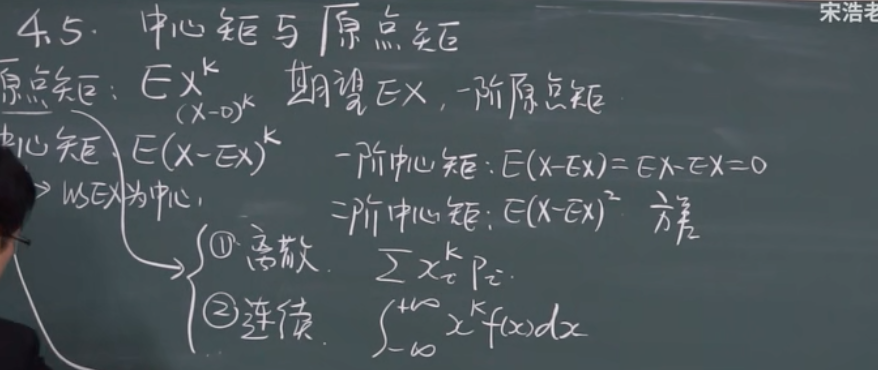 宋浩老
4.5. 中心矩与原点矩
原点矩: EX^k 期望EX, 一阶原点矩
(X-0)^k
中心矩: E(X-EX)^k 一阶中心矩: E(X-EX)=EX-EX=0
以EX为中心, 二阶中心矩: E(X-EX)^2 方差
① 离散. Σ x_i^k p_i.
② 连续. ∫_{-∞}^{+∞} x^k f(x)dx